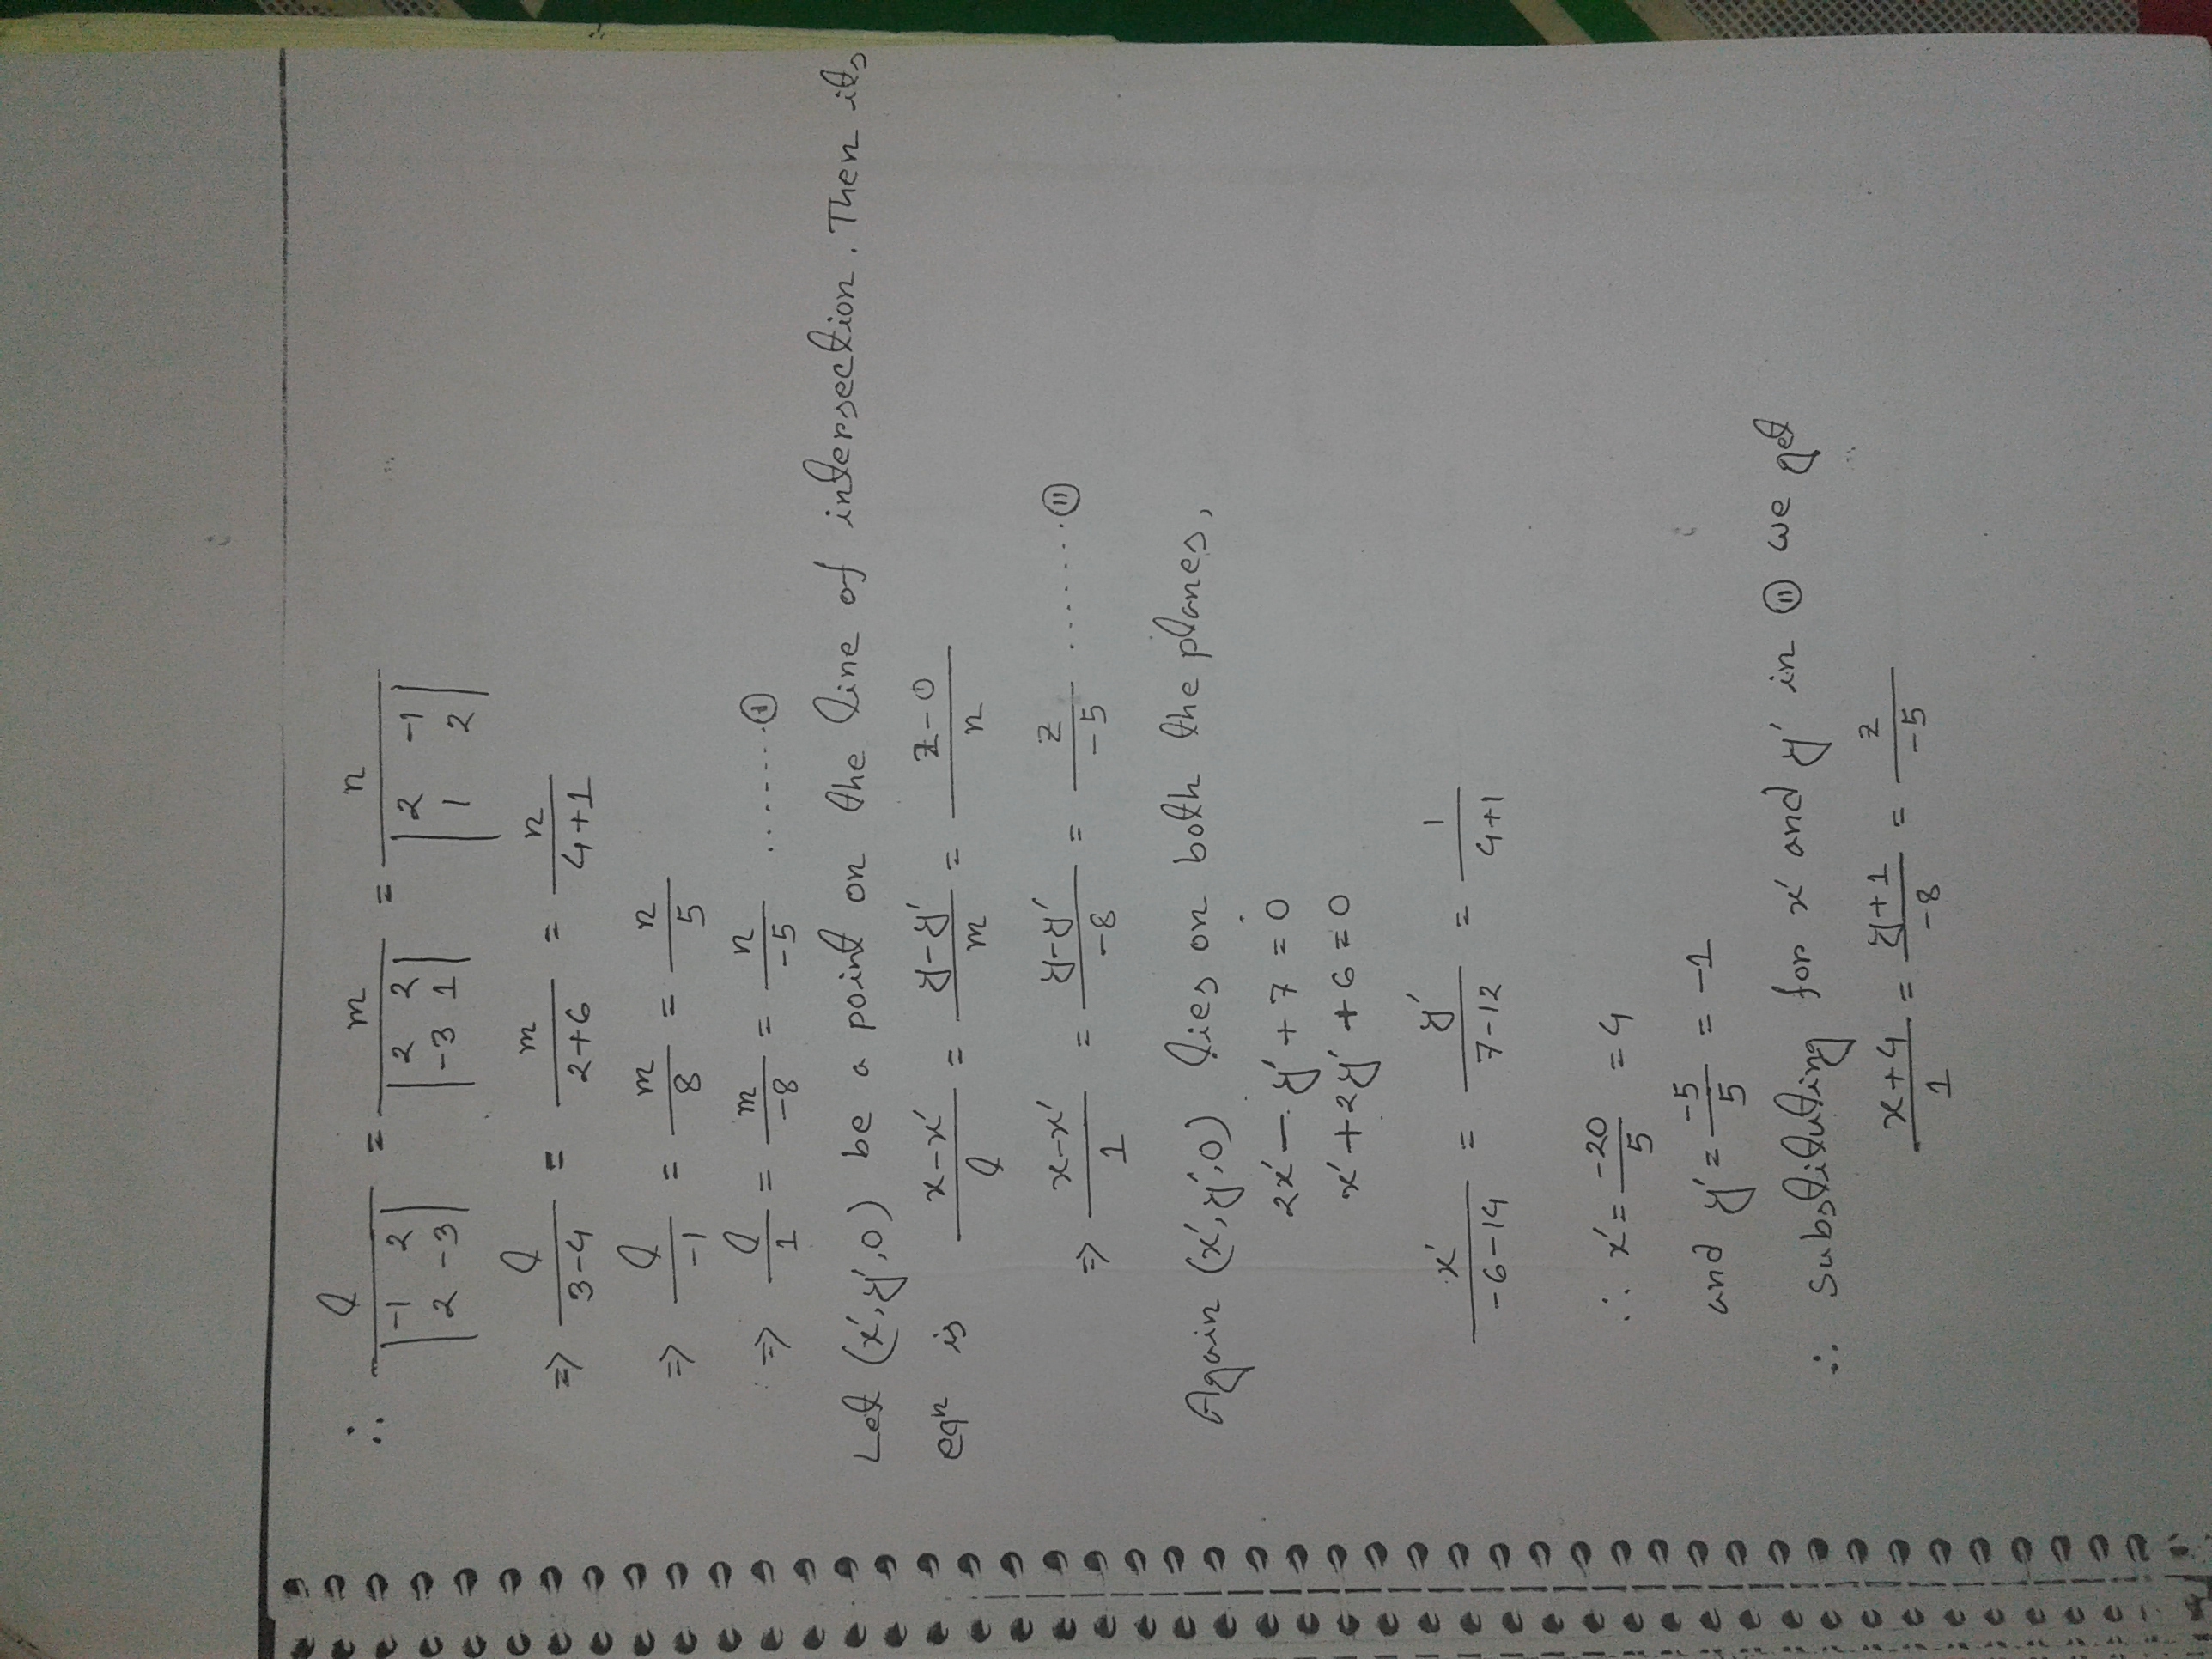 ∴ l / |-1 2; 2 -3| = m / |2 2; -3 1| = n / |2 -1; 1 2|
⇒ l/(3-4) = m/(2+6) = n/(4+1)
⇒ l/-1 = m/8 = n/5
⇒ l/1 = m/-8 = n/-5 ....... (I)
Let (x′, y′, 0) be a point on the line of intersection. Then its
eqn is (x-x′)/l = (y-y′)/m = (z-0)/n
⇒ (x-x′)/1 = (y-y′)/-8 = z/-5 ........ (II)
Again (x′, y′, 0) lies on both the planes,
2x′ - y′ + 7 = 0
x′ + 2y′ + 6 = 0
x′/(-6-14) = y′/(7-12) = 1/(4+1)
∴ x′ = -20/5 = 4
and y′ = -5/5 = -1
∴ substituting for x′ and y′ in (II) we get
(x+4)/1 = (y+1)/-8 = z/-5